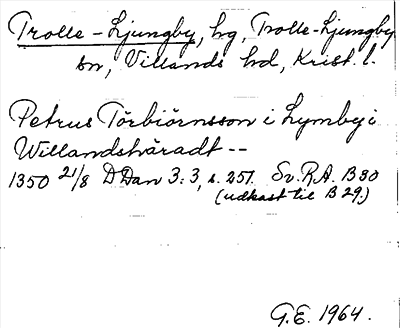 Trolle-Ljungby, hg, Trolle-Ljungby
sn, Villands hd, Krist. l.
Petrus Törbiörnsson i Lymby i
Willandshäradt --
1350 21/8 DDan 3:3, s. 251. Sv. R.A. B 30
(udkast til B 29.)
G.E. 1964.